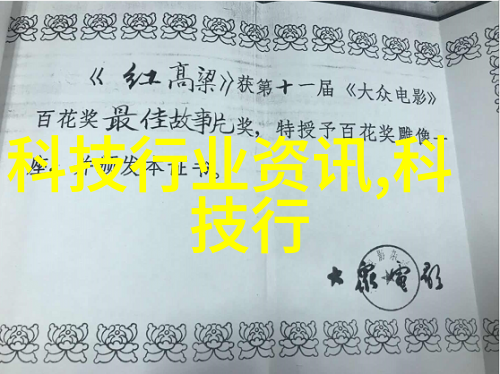 《红高粱》获第十一届《大众电影》
百花奖最佳故事片奖，特授予百花奖雕像一
座，并颁发本证书。
科技行业资讯,科
技行
大众电影